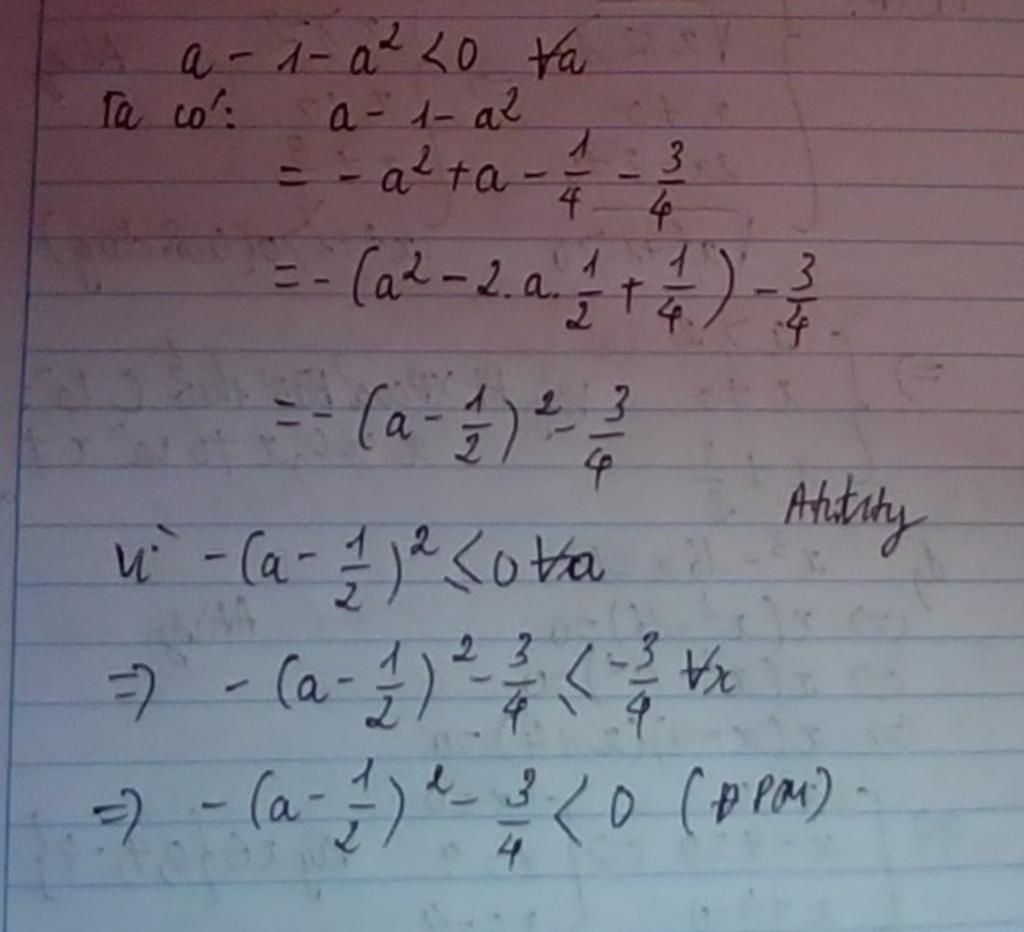 a - 1 - a² < 0 ∀a
Ta có: a - 1 - a²
= - a² + a - 1/4 - 3/4
= - (a² - 2.a.1/2 + 1/4) - 3/4
= - (a - 1/2)² - 3/4
Vì - (a - 1/2)² ≤ 0 ∀a
⇒ - (a - 1/2)² - 3/4 ≤ -3/4 ∀x
⇒ - (a - 1/2)² - 3/4 < 0 (ĐPCM)